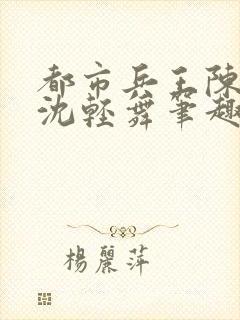 都市兵王陳
沈輕舞筆趣
楊麗萍